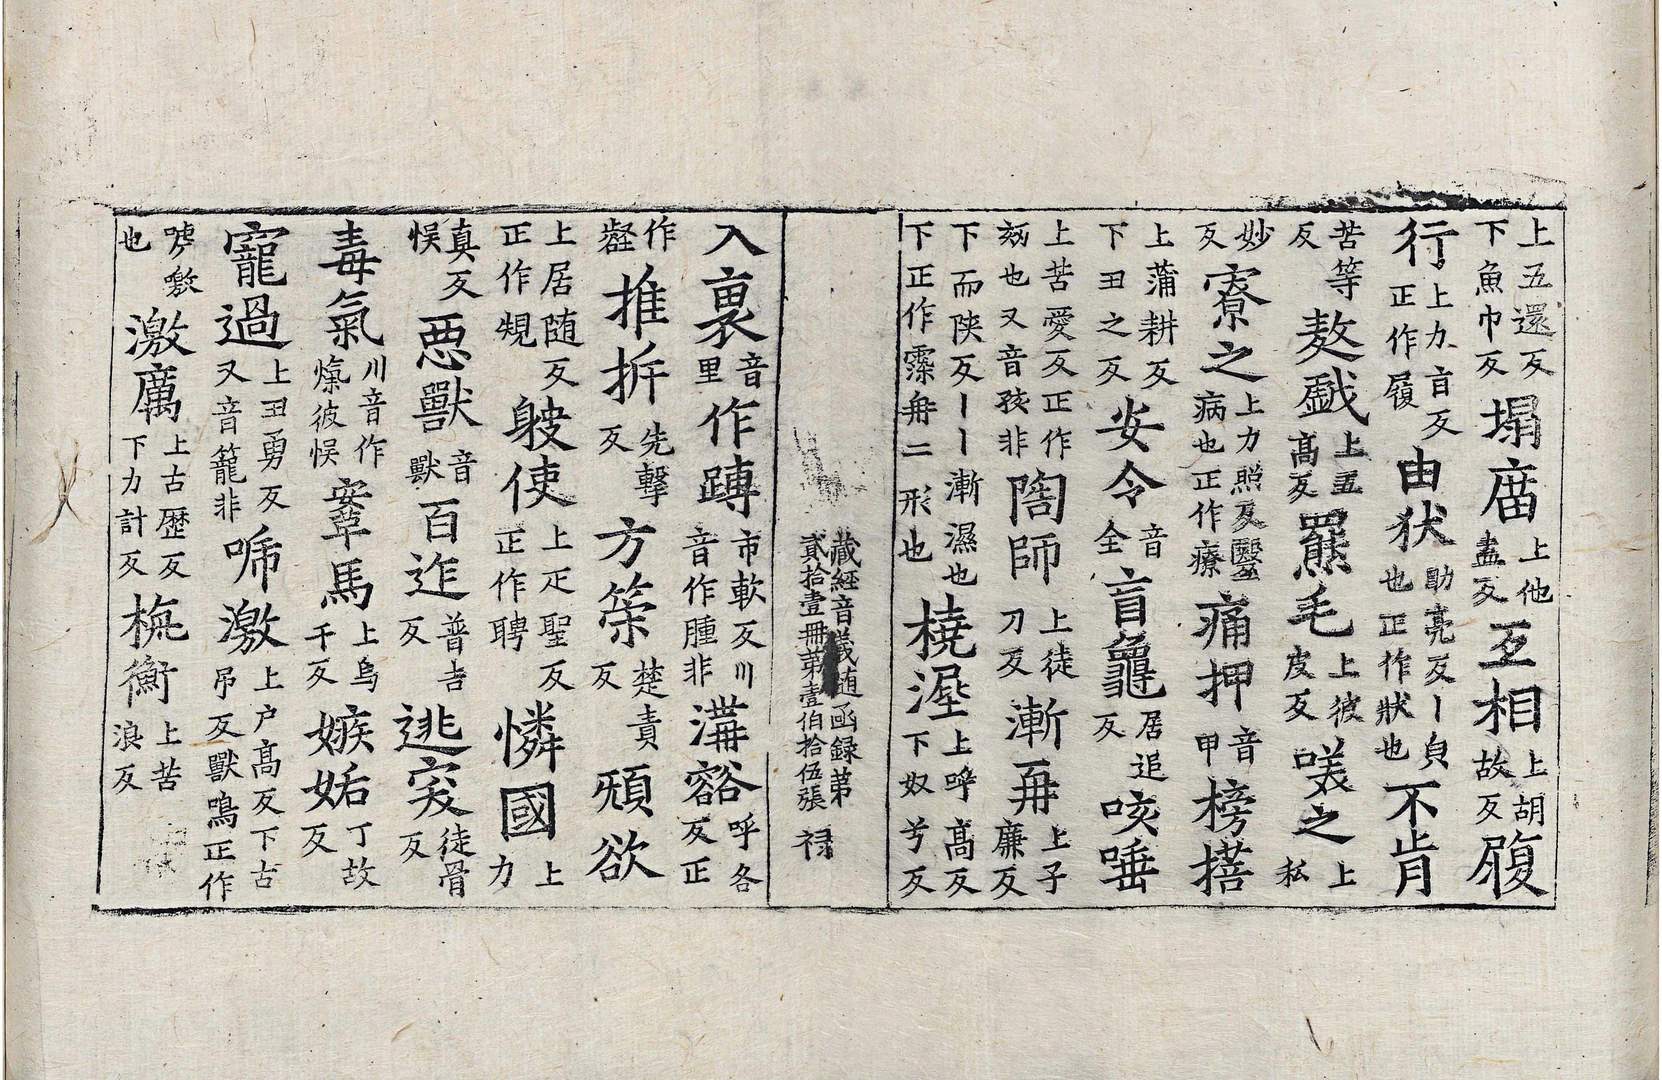 上五還反下魚巾反塌㕓上他盍反互相上胡故反履
行上力盲反正作履由犾助亮反丨皃也正作狀也不肯
苦等反𢾍戱上五高反羆毛上彼皮反𠲖之上私
妙反寮之上力照反醫病也正作療痛押音甲榜搭
上蒲耕反下丑之反安令音全盲龜居追反咳唾
上苦愛反正作欬也又音孩非陶師上徒刀反漸冉上子廉反
下而陝反丨丨漸濕也橈湿上呼高反下奴兮反
下正作霂冉二形也
藏經音義随函録第
貳拾壹冊第壹伯拾伍張 禄
入裏音里作蹲市軟反川音作腫非溝谿呼各反正
作壑推拆先擊反方策楚責反頑欲
上居随反正作規躯使上疋聖反正作聘憐國上力
真反悞惡獸音獸百迮普吉反逃突徒骨反
毒氣川音作㷶彼悞鞌馬上烏千反嫉姤丁故反
寵過上丑勇反又音籠非啼激上户高反下古弔反獸鳴正作
嘷敫也激厲上古歷反下力計反㮏衡上苦浪反